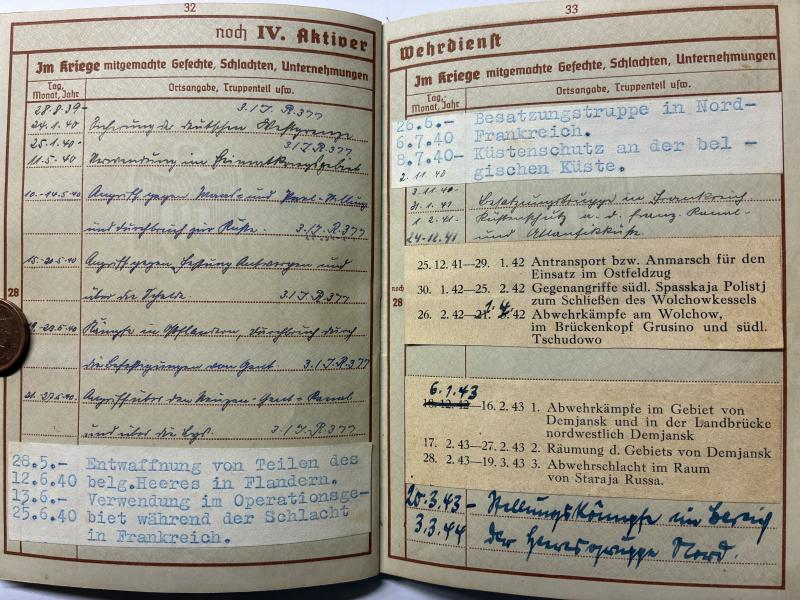 32
noch IV. Aktiver
Im Kriege mitgemachte Gefechte, Schlachten, Unternehmungen
Tag, Monat, Jahr
Ortsangabe, Truppenteil usw.
28.8.39-
3./I.R.377
24.1.40 Sicherung d. deutschen Westgrenze
25.1.40-
3./I.R.377
11.5.40 Verwendung im Heimatkriegsgebiet
10.-14.5.40 Angriff gegen Maas- und Peel-Stellung
und Durchbruch zur Küste. 3./I.R.377
28
15.-20.5.40 Angriff gegen Festung Antwerpen und
über die Schelde. 3./I.R.377
Kämpfe in Ostflandern, Durchbruch durch
die Befestigungen von Gent. 3./I.R.377
21.-27.5.40 Angriff über den Neuzen-Gent-Kanal
und über die Lys. 3./I.R.377
28.5.- Entwaffnung von Teilen des
12.6.40 belg.Heeres in Flandern.
13.6.- Verwendung im Operationsge-
25.6.40 biet während der Schlacht
in Frankreich.
33
Wehrdienst
Im Kriege mitgemachte Gefechte, Schlachten, Unternehmungen
Tag, Monat, Jahr
Ortsangabe, Truppenteil usw.
26.6.- Besatzungstruppe in Nord-
6.7.40 Frankreich.
8.7.40- Küstenschutz an der bel -
2.11.40 gischen Küste.
3.11.40-
31.1.41 Besatzungstruppe in Frankreich
1.2.41- Küstenschutz a. d. franz. Kanal-
24.12.41 und Atlantikküste
25. 12. 41—29. 1. 42 Antransport bzw. Anmarsch für den
Einsatz im Ostfeldzug
noch 28
30. 1. 42—25. 2. 42 Gegenangriffe südl. Spasskaja Polistj
zum Schließen des Wolchowkessels
26. 2. 42— 1.4. 42 Abwehrkämpfe am Wolchow,
im Brückenkopf Grusino und südl.
Tschudowo
6.1.43
18.12.42—16. 2. 43 1. Abwehrkämpfe im Gebiet von
Demjansk und in der Landbrücke
nordwestlich Demjansk
17. 2. 43—27. 2. 43 2. Räumung d. Gebiets von Demjansk
28. 2. 43—19. 3. 43 3. Abwehrschlacht im Raum
von Staraja Russa.
20.3.43 - Stellungskämpfe im Bereich
3.3.44 der Heeresgruppe Nord.